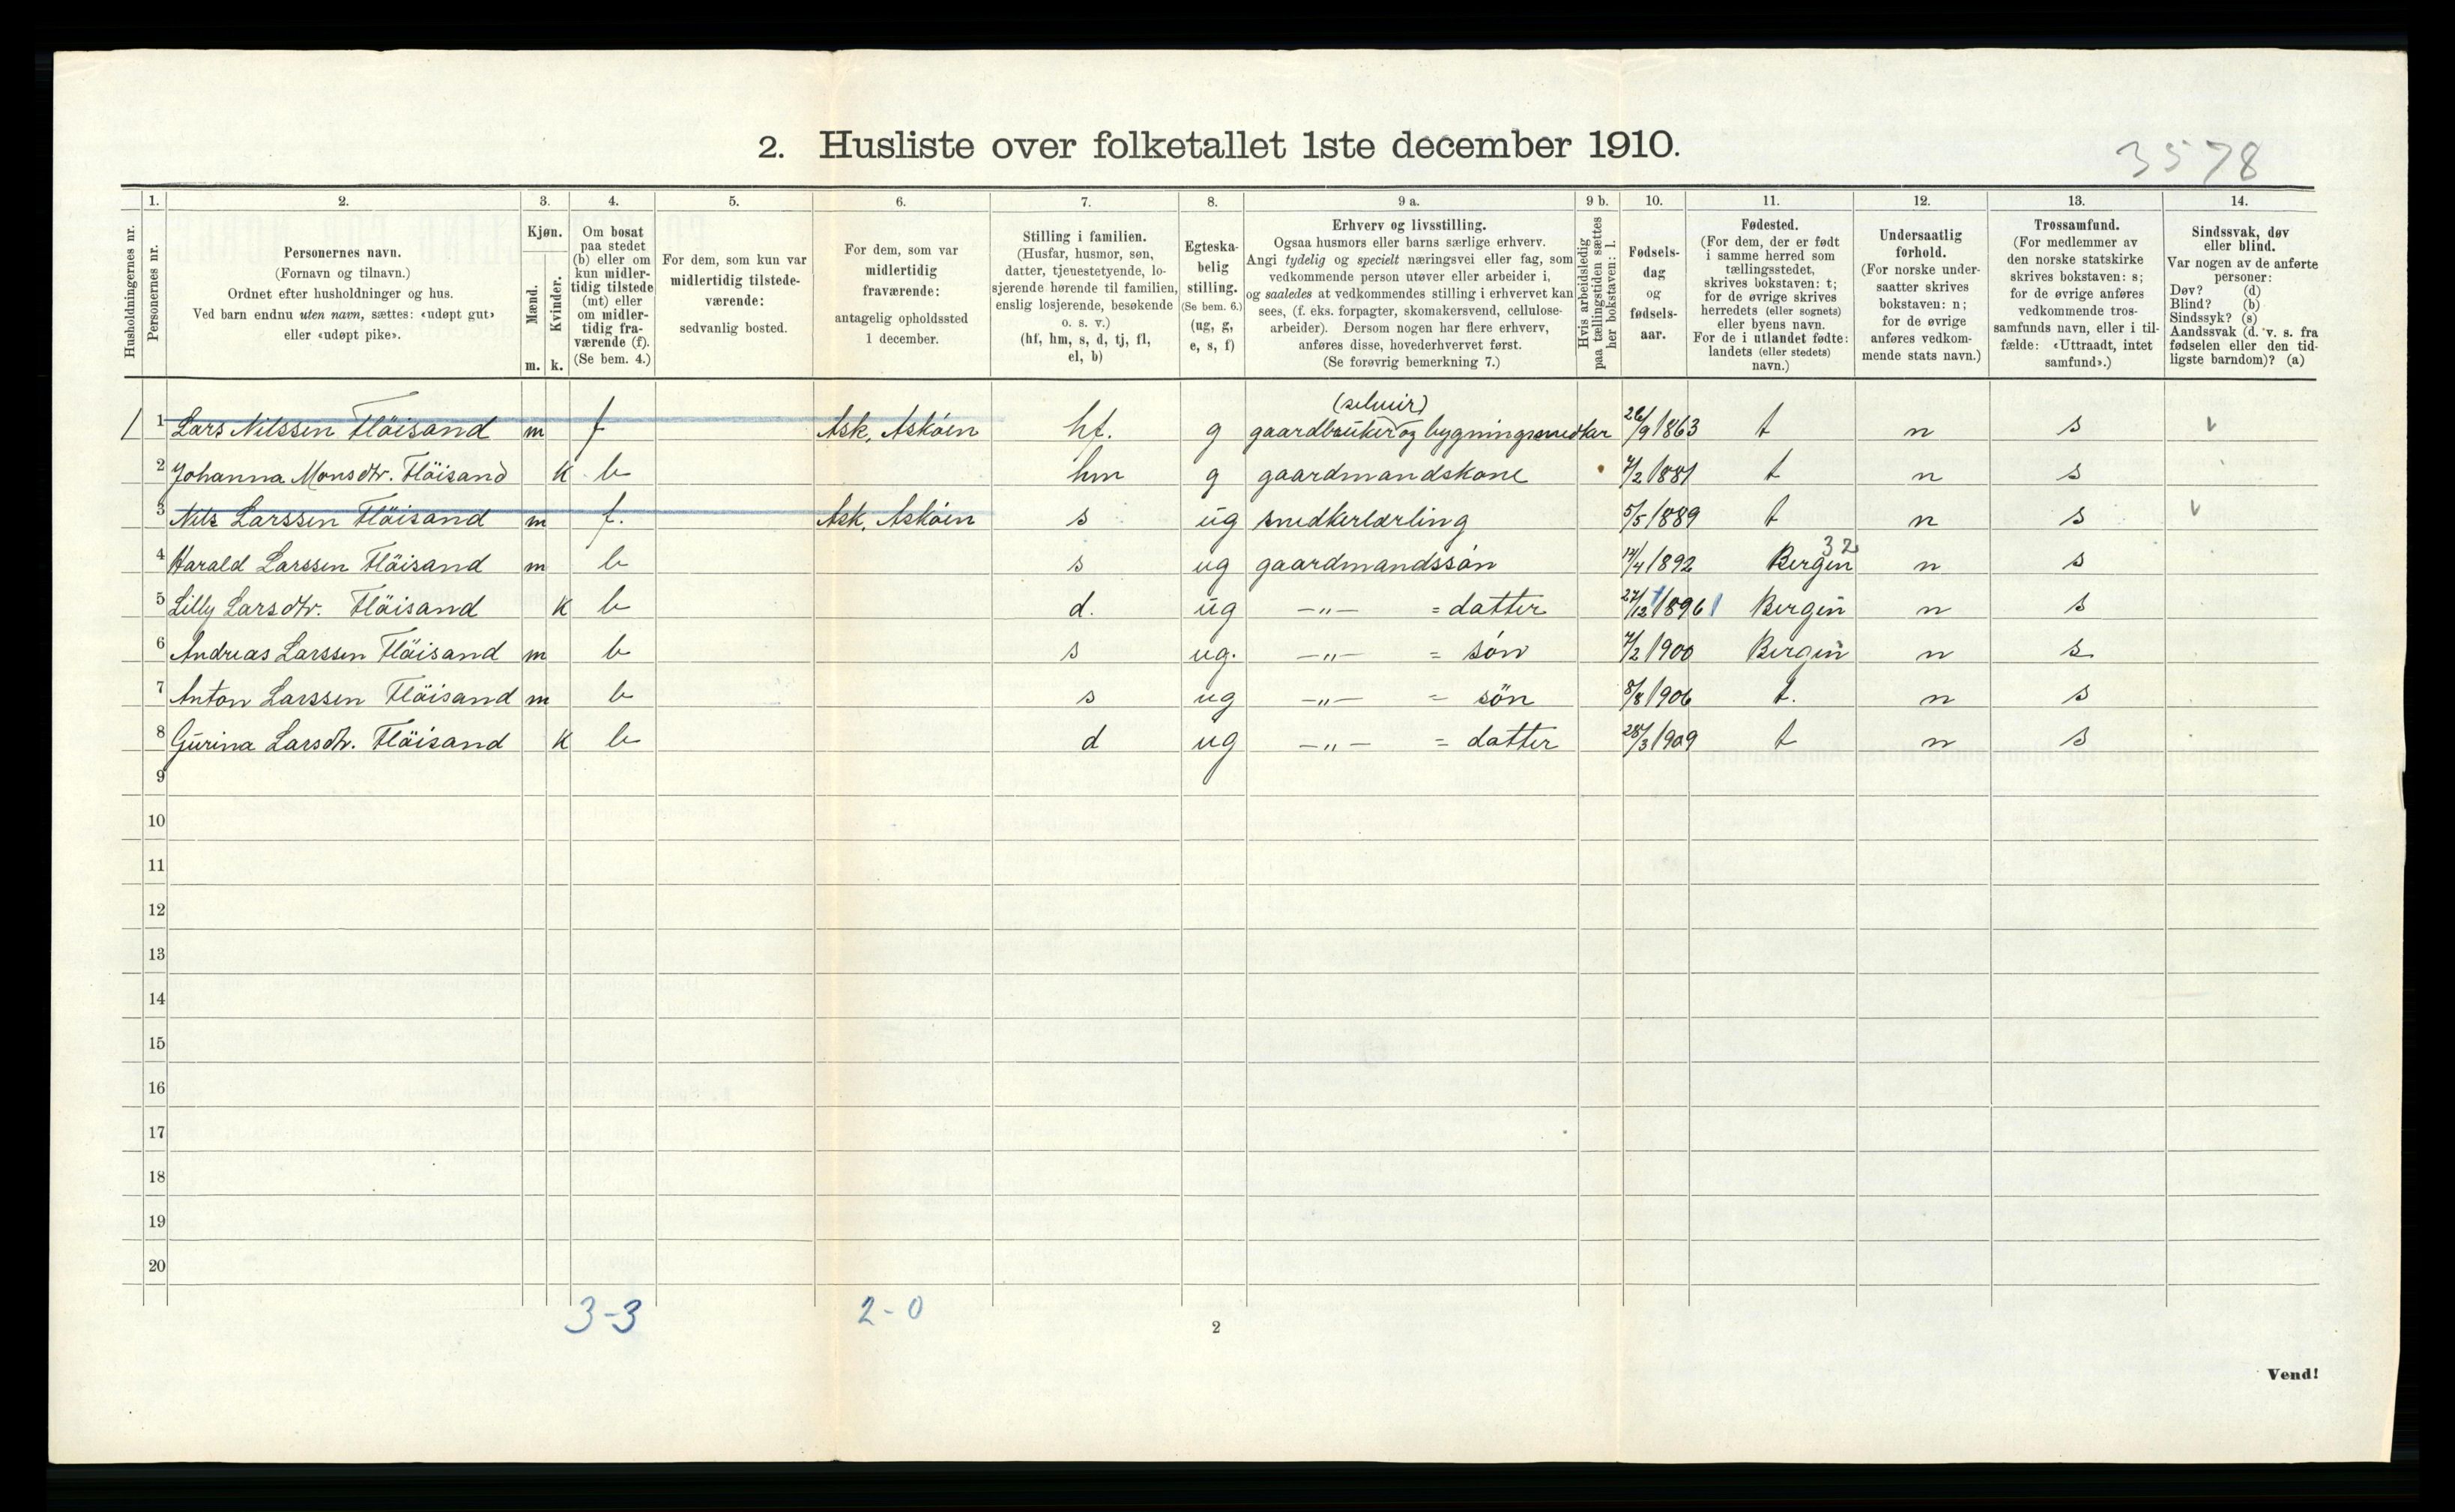 2. Husliste over folketallet 1ste december 1910.
3578
Husholdningernes nr.
1.
Personernes nr.
2.
Personernes navn.
(Fornavn og tilnavn.)
Ordnet efter husholdninger og hus.
Ved barn endnu uten navn, sættes: «udøpt gut»
eller «udøpt pike».
3.
Kjøn.
Mænd.
Kvinder.
m. k.
4.
Om bosat
paa stedet
(b) eller om
kun midler-
tidig tilstede
(mt) eller
om midler-
tidig fra-
værende (f).
(Se bem. 4.)
5.
For dem, som kun var
midlertidig tilstede-
værende:
sedvanlig bosted.
6.
For dem, som var
midlertidig
fraværende:
antagelig opholdssted
1 december.
7.
Stilling i familien.
(Husfar, husmor, søn,
datter, tjenestetyende, lo-
sjerende hørende til familien,
enslig losjerende, besøkende
o. s. v.)
(hf, hm, s, d, tj, fl,
el, b)
8.
Egteska-
belig
stilling.
(Se bem. 6.)
(ug, g,
e, s, f)
9 a.
Erhverv og livsstilling.
Ogsaa husmors eller barns særlige erhverv.
Angi tydelig og specielt næringsvei eller fag, som
vedkommende person utøver eller arbeider i,
og saaledes at vedkommendes stilling i erhvervet kan
sees, (f. eks. forpagter, skomakersvend, cellulose-
arbeider). Dersom nogen har flere erhverv,
anføres disse, hovederhvervet først.
(Se forøvrig bemerkning 7.)
9 b.
Hvis arbeidsledig
paa tællingstiden sættes
her bokstaven: l.
10.
Fødsels-
dag
og
fødsels-
aar.
11.
Fødested.
(For dem, der er født
i samme herred som
tællingsstedet,
skrives bokstaven: t;
for de øvrige skrives
herredets (eller sognets)
eller byens navn.
For de i utlandet fødte:
landets (eller stedets)
navn.)
12.
Undersaatlig
forhold.
(For norske under-
saatter skrives
bokstaven: n;
for de øvrige
anføres vedkom-
mende stats navn.)
13.
Trossamfund.
(For medlemmer av
den norske statskirke
skrives bokstaven: s;
for de øvrige anføres
vedkommende tros-
samfunds navn, eller i til-
fælde: «Uttraadt, intet
samfund».)
14.
Sindssvak, døv
eller blind.
Var nogen av de anførte
personer:
Døv? (d)
Blind? (b)
Sindssyk? (s)
Aandssvak (d. v. s. fra
fødselen eller den tid-
ligste barndom)? (a)
(seluier)
1 1 Lars Nilssen Fläisand m f Ask, Askøen hf. g gaardbruker og bygningssnedker 26/9 1863 t n s v
2 Johanna Monsdtr. Fläisand k b hm g gaardmandskone 7/2 1881 t n s
3 Nils Larssen Fläisand m f. Ask, Askøen s ug snedkerlærling 5/5 1889 t n s v
32
4 Harald Larssen Fläisand m b s ug gaardmandssøn 14/4 1892 Bergen n s
5 Lilly Larsdtr. Fläisand k b d. ug —"— = datter 27/12 1896 Bergen n s
6 Andreas Larssen Fläisand m b s ug. —"— = søn 7/2 1900 Bergen n s
7 Anton Larssen Fläisand m b s ug —"— = søn 8/8 1906 t. n s
8 Gurina Larsdtr. Fläisand k b d ug —"— = datter 28/3 1909 t n s
9
10
11
12
13
14
15
16
17
18
19
20
3-3 2-0
2
Vend!